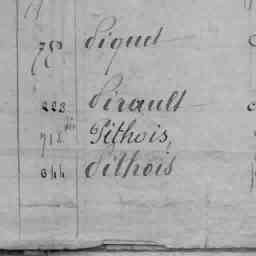 750 Piquet
223 Pirault
718 bis Pithois,
644 Pithois